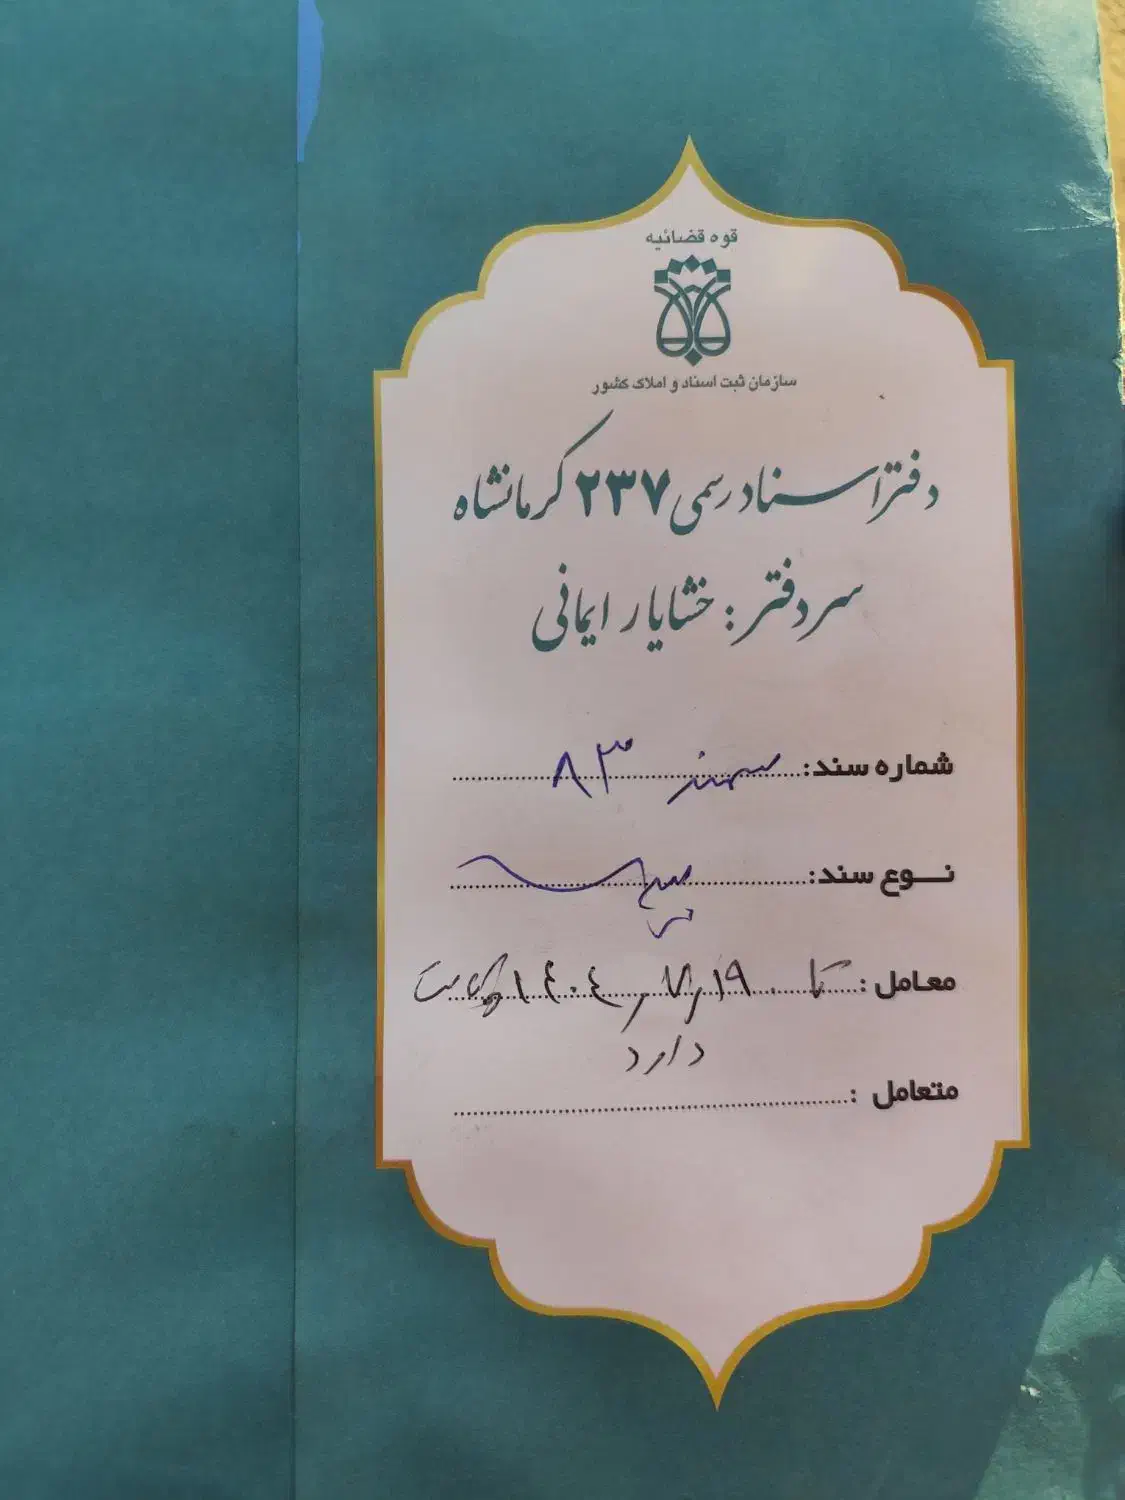 قوه قضائیه
سازمان ثبت اسناد و املاک کشور
دفتر اسناد رسمی ۲۳۷ کرمانشاه
سردفتر : خشایار ایمانی
شماره سند: سهند ۸۳
نوع سند:
معامل : تا ۱۹ ر ۷ ر ۱۴۰۴
دارد
متعامل :